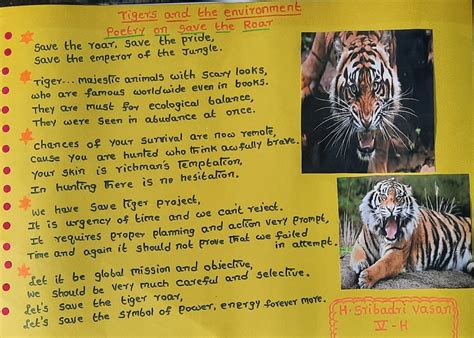 Tigers and the environment
Poetry on Save the Roar
Save the roar, Save the pride,
Save the emperor of the Jungle.
Tiger... majestic animals with scary looks,
who are famous worldwide even in books.
They are must for ecological balance,
They were seen in abudance at once.
Chances of your survival are now remote,
Cause you are hunted who think awfully brave.
Your skin is richman's Temptation,
In hunting there is no hesitation.
We have Save tiger project,
It is urgency of time and we can't reject.
It requires proper planning and action very prompt,
Time and again it should not prove that we failed
in attempt.
Let it be global mission and objective,
We should be very much careful and selective.
Let's save the tiger roar,
Let's save the symbol of power, energy forever more.
H. Sribadri Vasan
V - H